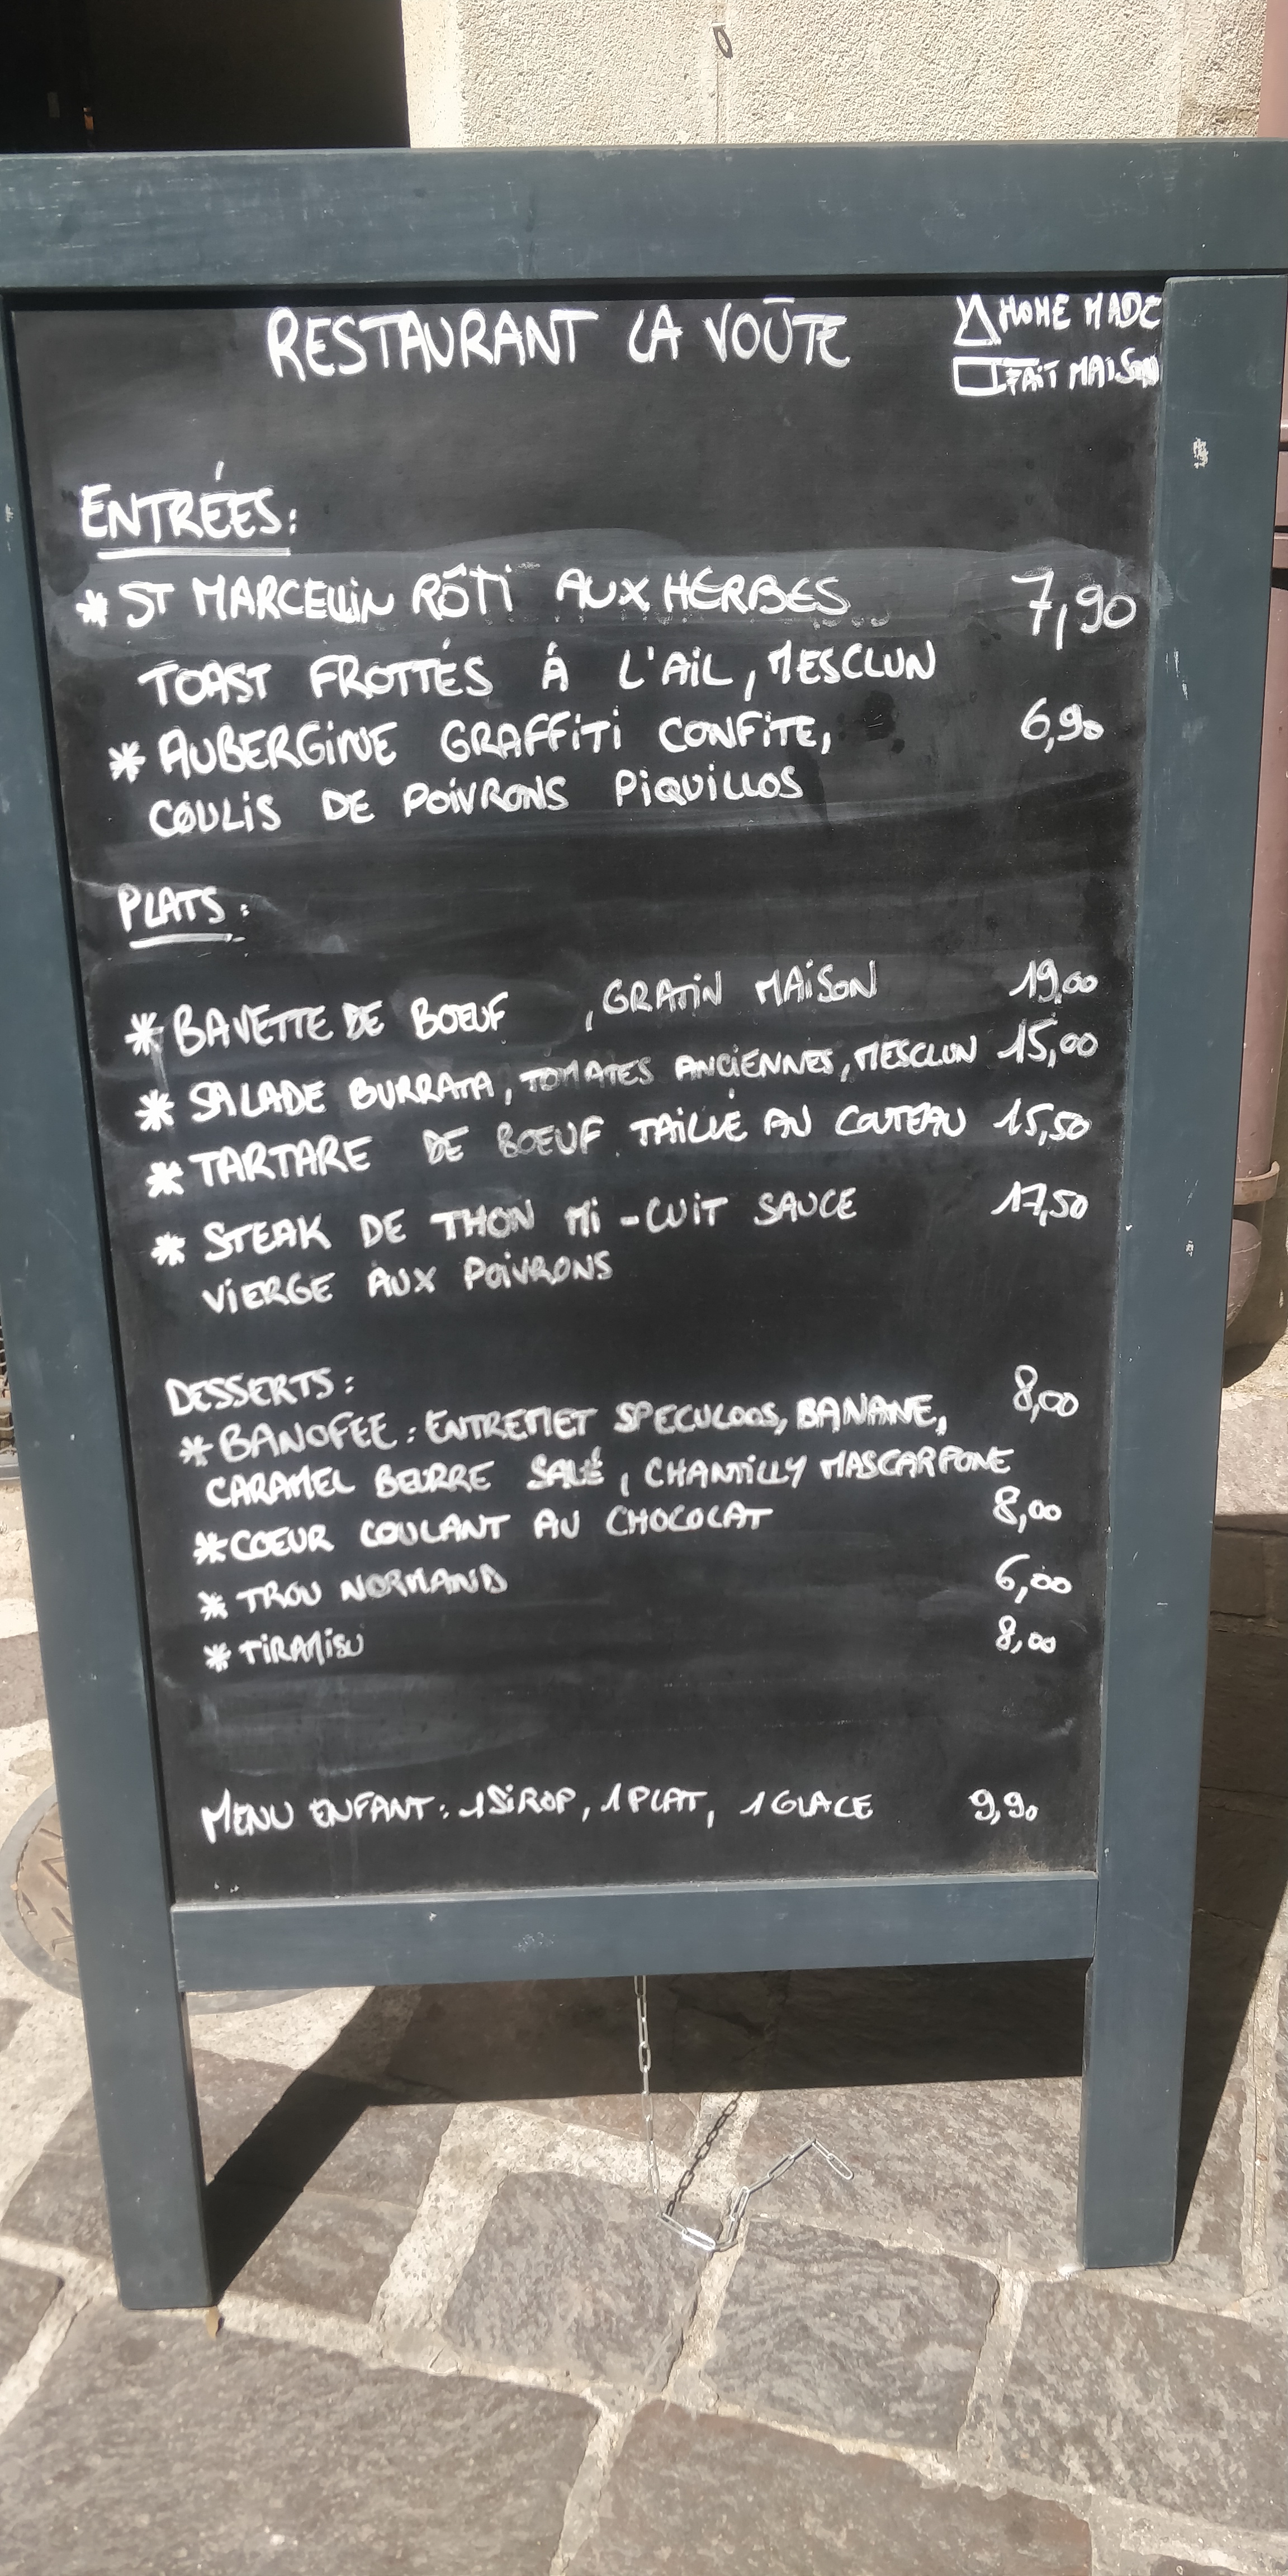 RESTAURANT LA VOÛTE
HOME MADE
FAIT MAISON
ENTRÉES:
* ST MARCELLIN RÔTI AUX HERBES 7,90
TOAST FROTTÉS À L'AIL, MESCLUN
* AUBERGINE GRAFFITI CONFITE, 6,90
COULIS DE POIVRONS PIQUILLOS
PLATS:
* BAVETTE DE BOEUF , GRATIN MAISON 19,00
* SALADE BURRATA, TOMATES ANCIENNES, MESCLUN 15,00
* TARTARE DE BOEUF TAILLÉ AU COUTEAU 15,50
* STEAK DE THON MI-CUIT SAUCE 17,50
VIERGE AUX POIVRONS
DESSERTS:
* BANOFEE: ENTREMET SPECULOOS, BANANE, 8,00
CARAMEL BEURRE SALÉ, CHANTILLY MASCARPONE
* COEUR COULANT AU CHOCOLAT 8,00
* TROU NORMAND 6,00
* TIRAMISU 8,00
MENU ENFANT: 1 SIROP, 1 PLAT, 1 GLACE 9,90